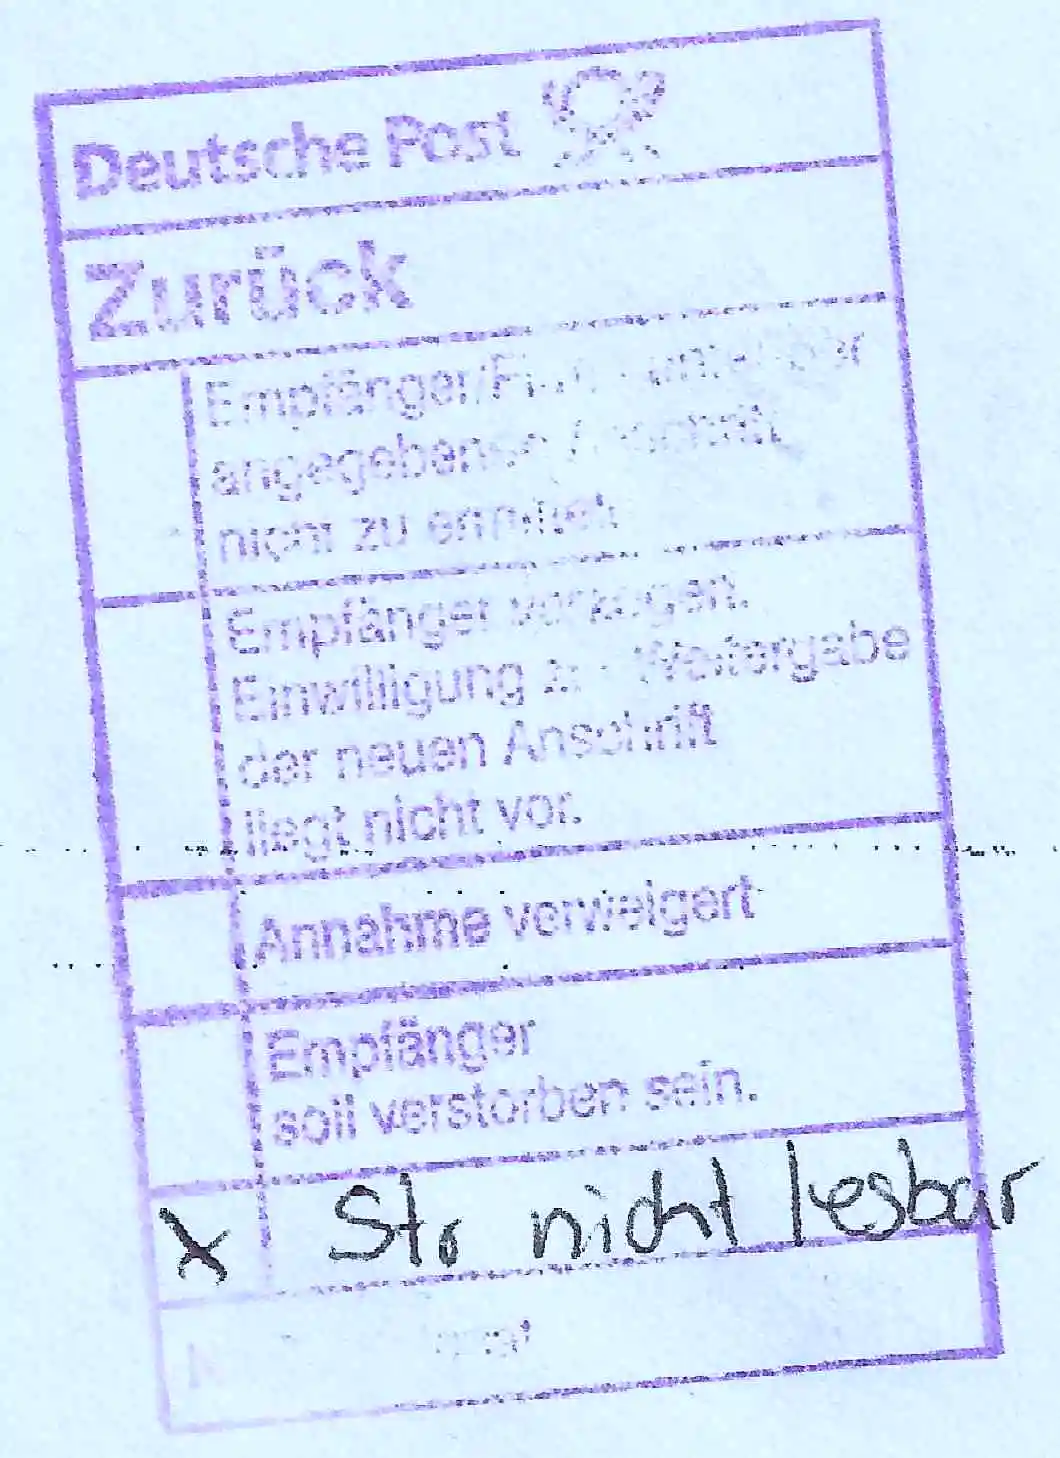 Deutsche Post
Zurück
Empfänger/Firma unter der
angegebenen Anschrift
nicht zu ermitteln
Empfänger verzogen.
Einwilligung zur Weitergabe
der neuen Anschrift
liegt nicht vor.
Annahme verweigert
Empfänger
soll verstorben sein.
x Str. nicht lesbar